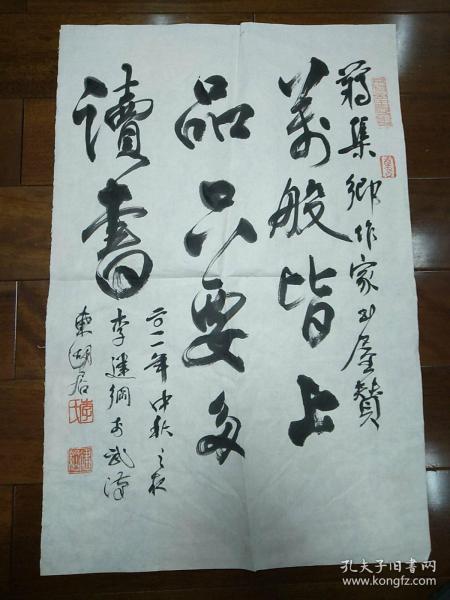 蒋集乡作家书屋赞
萬般皆上
品只要多
讀書
二〇一一年中秋之夜
李建纲于武汉
東湖居
孔夫子旧书网
www.kongfz.com